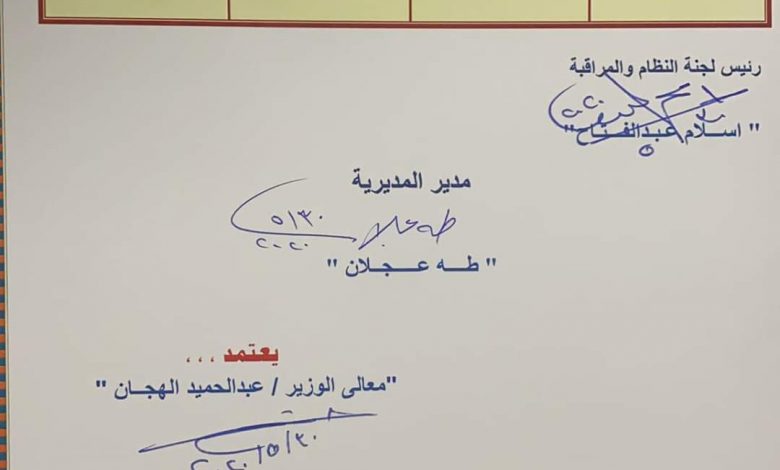 رئيس لجنة النظام والمراقبة
" اسلام عبدالفتاح"
مدير المديرية
طه عجلان
٥/٣٠
٢٠٢٠
" طـــه عـــجـــلان "
يعتمد ...
"معالى الوزير / عبدالحميد الهجـان "
٢٠٢٠/٥/٣٠